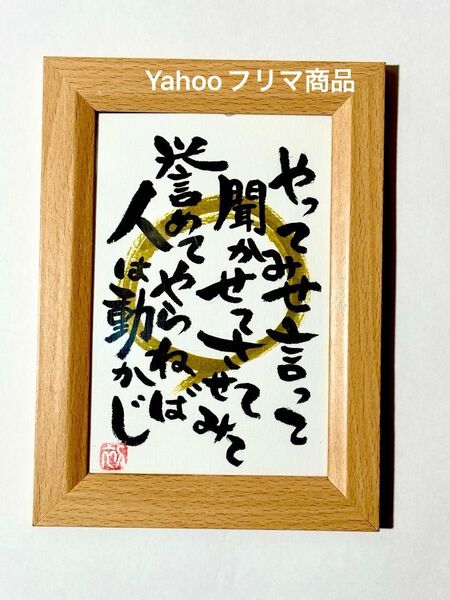 Yahooフリマ商品
やってみせ言って
聞かせてさせてみて
誉めてやらねば
人は動かじ